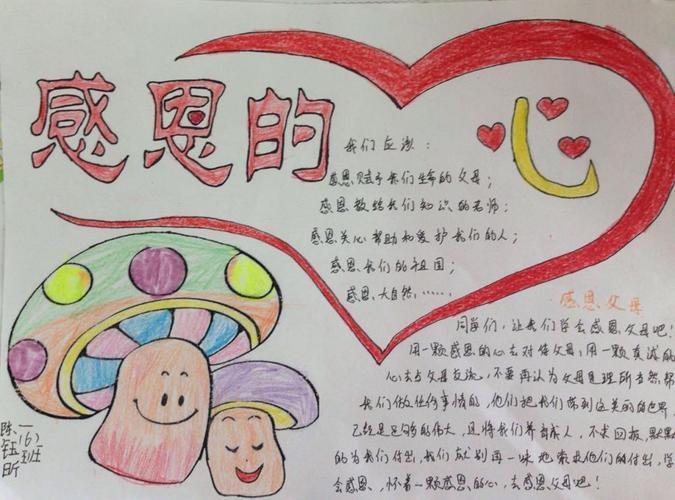 感恩的心
我们应该:
感恩赋予我们生命的父母;
感恩教给我们知识的老师;
感恩关心帮助和爱护我们的人;
感恩我们的祖国;
感恩大自然……
感恩父母
同学们,让我们学会感恩父母吧!
用一颗感恩的心去对待父母,用一颗真诚的
心去与父母交流,不要再认为父母是理所当然帮
我们做任何事情的,他们把我们带到这美丽的世界,
已经是足够的伟大,且将我们养育成人,不求回报,默默
的为我们付出,我们就别再一味地索求他们的付出,学
会感恩,怀着一颗感恩的心,去感恩父母吧!
一(6)班
陈钰昕